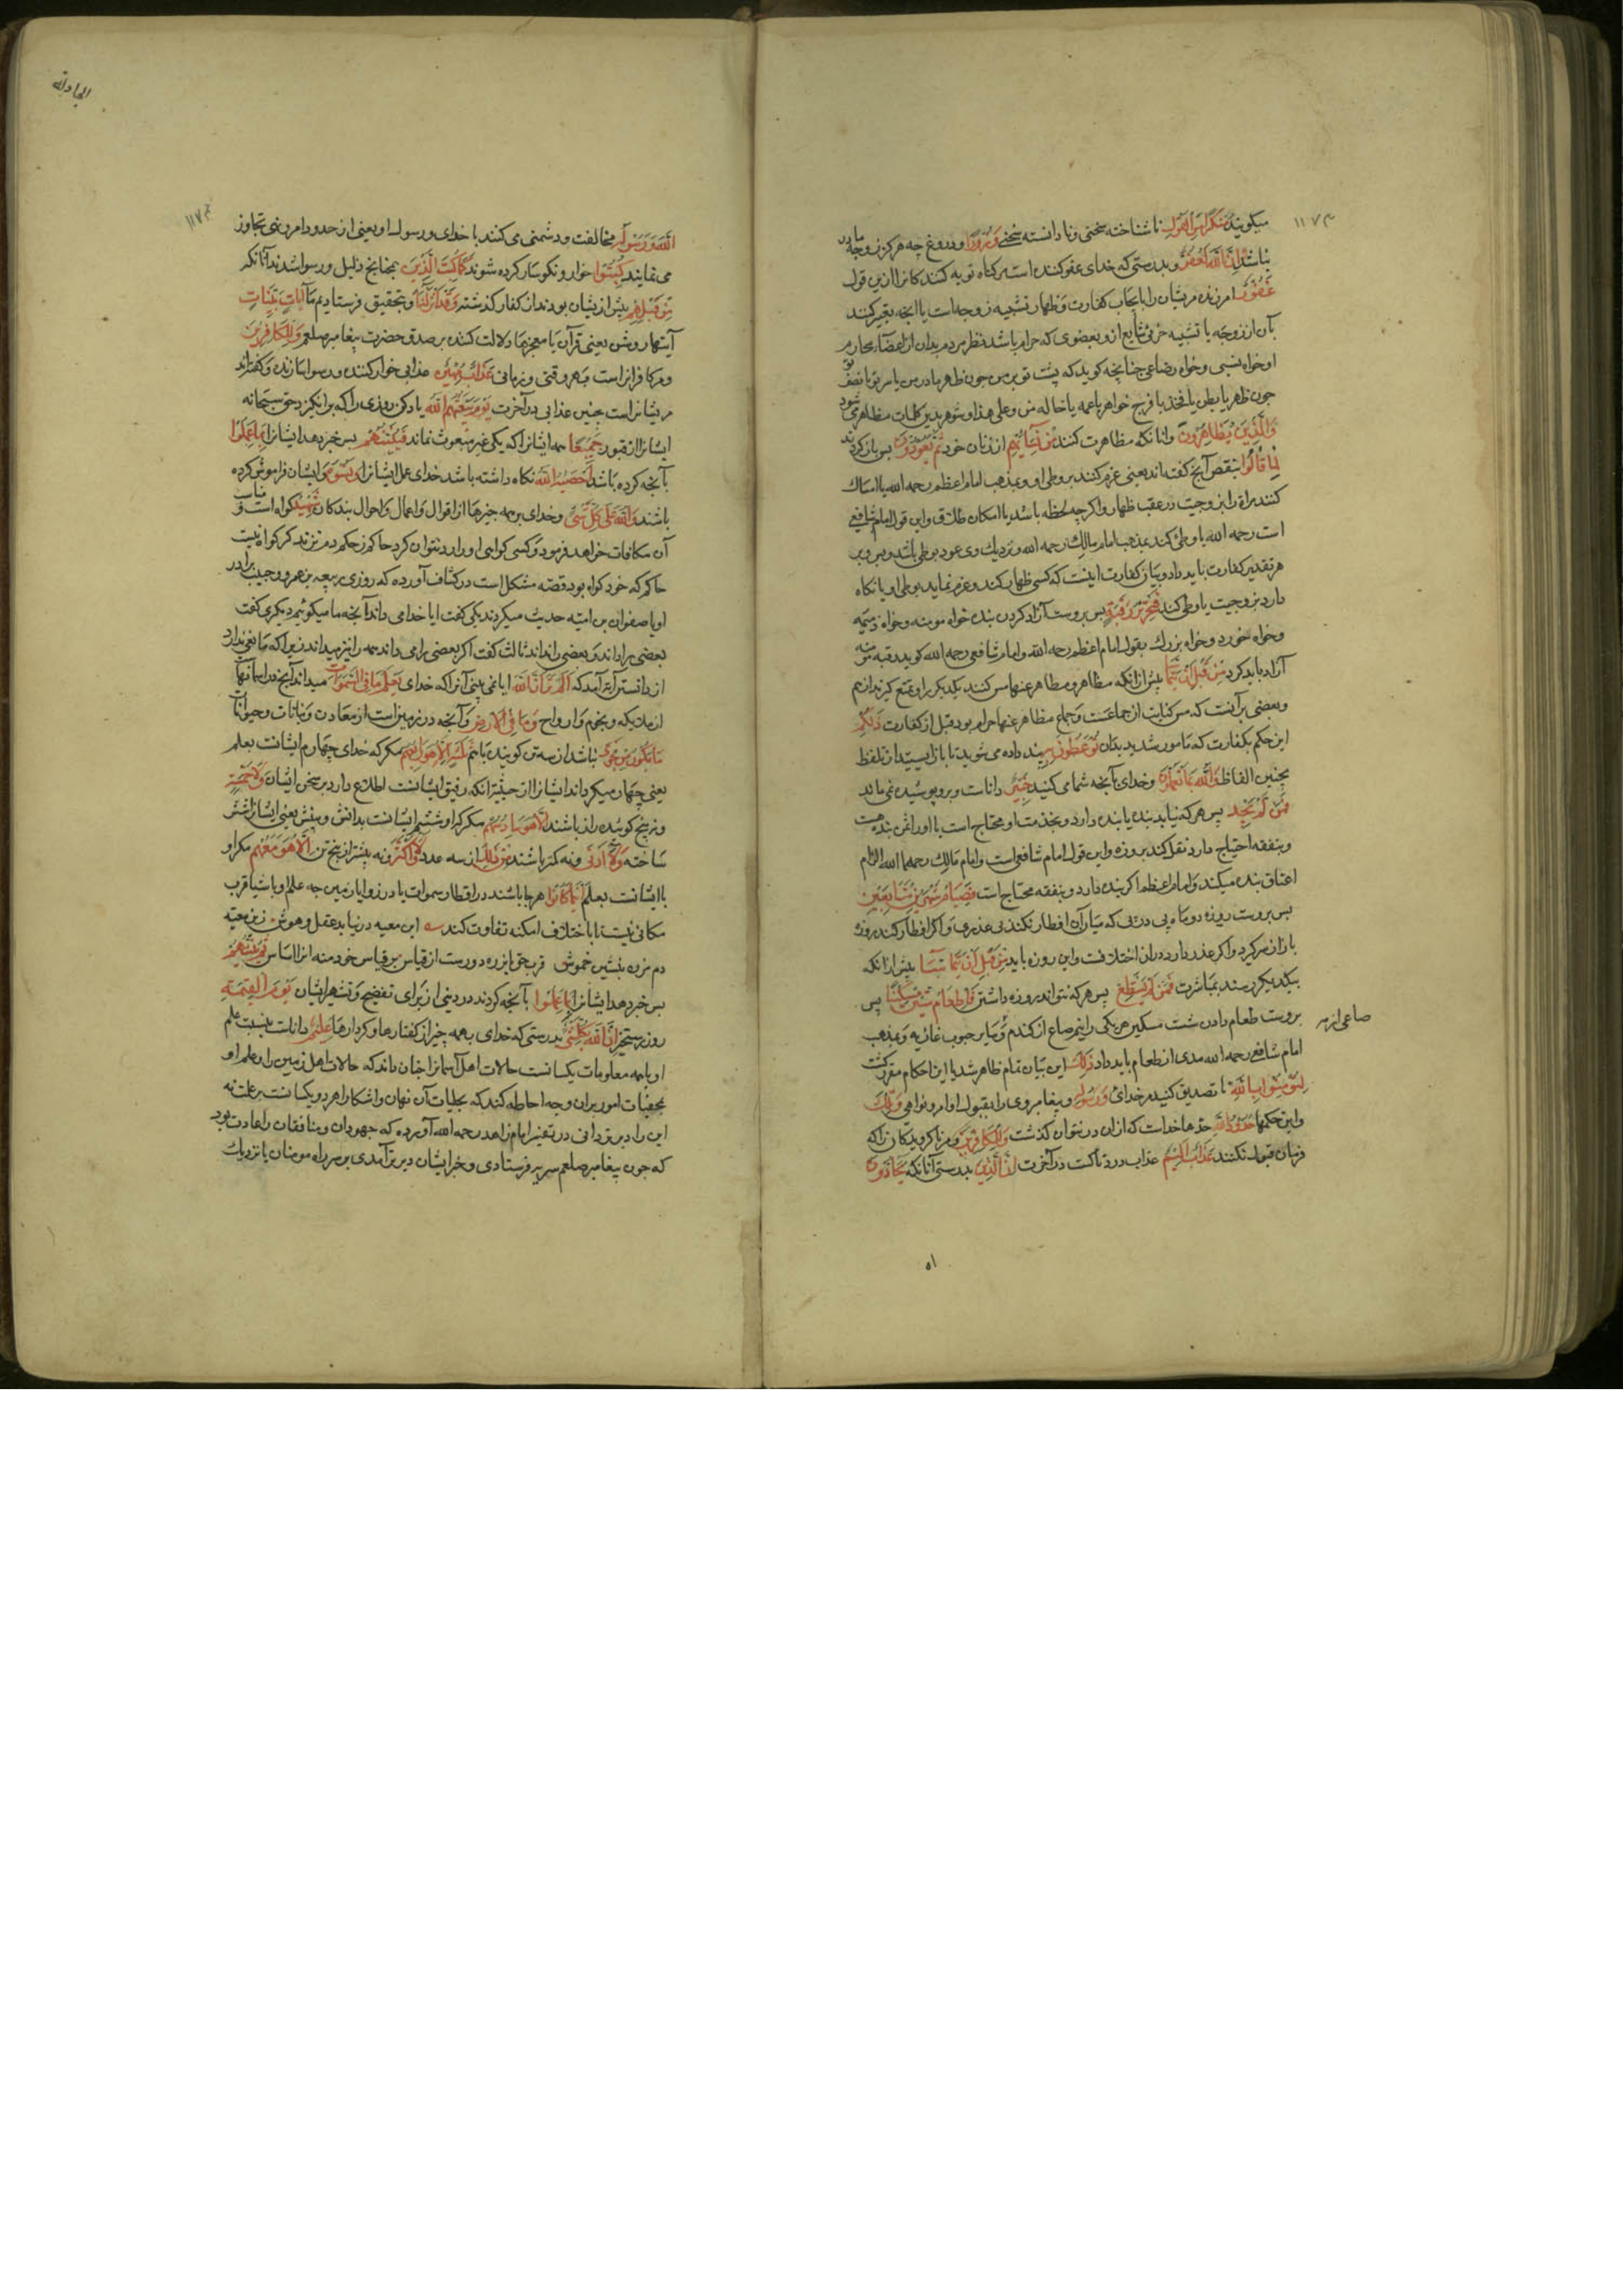 میکویند مُنْكَرًا مِنَ الْقَوْلِ ناشناخته سخنی و نادانسته سخنے وَزُورًا و دروغ چه هرکز زوجه مادر
نباشد وَإِنَّ اللَّهَ لَعَفُوٌّ و بدرستی که خدای عفو کننده است کناه توبه کنندکانرا ازین قول
غَفُورٌ امرزنده مریشان را بایجاب کفارت و ظهار تشبیه زوجه است یا انچه تعبیر کنند
بآن از زوجه یا تشبیه جزئی شایع ازو بعضوی که حرام باشد نظر مردم بدان از اعضآء محارم
او خواه نسبی و خواه رضاعی جنانچه کوید که پشت تو بر من جون ظهر مادر من یا سر تو یا نصف تو
جون ظهر یا بطن یا فخذ یا فرج خواهر یا عمه یا خاله من وعلی هذا و شوهر بدین کلمات مظاهر می شود
وَالَّذِينَ يُظَاهِرُونَ وانانکه مظاهرت کنند مِنْ نِسَائِهِمْ از زنان خود ثُمَّ يَعُودُونَ پس باز کردند
لِمَا قَالُوا بنقص آنچ کفته اند یعنی عزم کنند بر وطی او و بمذهب امام اعظم رحمه الله یا امساک
کنند مراة را بزوجیت در عقب ظهار و اکرچه لحظه باشد با امکان طلاق و این قول امام شافعی
است رحمه الله یا وطی کند بمذهب امام مالک رحمه الله و نزدیک وی عود بوطی باشد و بس و بر
هر تقدیر کفارت باید داد و بیان کفارت اینست که کسی ظهار کند و عزم نماید بوطی او یا نکاه
دارد بزوجیت یا وطی کند فَتَحْرِيرُ رَقَبَةٍ پس بروست آزاد کردن بنده خواه مومنه و خواه ذمیه
و خواه خورد و خواه بزرک بقول امام اعظم رحمه الله و امام شافعی رحمه الله کوید رقبه مومنه
آزاد باید کرد مِنْ قَبْلِ أَنْ يَتَمَاسَّا پیش ازانکه مظاهر و مظاهر عنها مس کنند یکدیکر را و تمتع کیرند از هم
و بعضی برآنند که مس کنایت از جماعست و جماع مظاهر عنها حرام بود قبل از کفارت ذَلِكُمْ
این حکم بکفارت که مامور شدید بدان تُوعَظُونَ بِهِ پند داده می شوید تا باز ایستید از تلفظ
بچنین الفاظ وَاللَّهُ بِمَا تَعْمَلُونَ و خدای بآنچه شما می کنید خَبِيرٌ داناست و برو پوشیده نمی ماند
فَمَنْ لَمْ يَجِدْ پس هر که نیابد بنده یا بنده دارد و بخدمت او محتاج است یا او را ثمن بنده هست
و بنفقه احتیاج دارد نقل کند بروزه و این قول امام شافعی است و امام مالک رحمهما الله الزام
اعتاق بنده میکند و امام اعظم اکر بنده دارد و بنفقه محتاج است فَصِيَامُ شَهْرَيْنِ مُتَتَابِعَيْنِ
پس بروست روزه دو ماه پی در پی که میان آن افطار نکند بی عذری و اکر افطار کند روزه
باز از سر کیرد و اکر عذر دارد دران اختلافست و این روزه باید مِنْ قَبْلِ أَنْ يَتَمَاسَّا پیش ازانکه
بیکدیکر رسند بمباشرت فَمَنْ لَمْ يَسْتَطِعْ پس هر که نتواند روزه داشتن فَإِطْعَامُ سِتِّينَ مِسْكِينًا پس
بروست طعام دادن شصت مسکین هر یکی را نیم صاع از کندم و سایر حبوب غاذیه و بمذهب
صاعی از هر
امام شافعی رحمه الله مدی از طعام باید داد ذَلِكَ این بیان تمام ظاهر شد یا این احکام مقرر کشت
لِتُؤْمِنُوا بِاللَّهِ تا تصدیق کنید مر خدای وَرَسُولِهِ و پیغامبر وی را بقبول اوامر و نواهی وَتِلْكَ
و این حکمها حُدُودُ اللَّهِ حدها خداست که ازان در نتوان کذشت وَلِلْكَافِرِينَ و مر ناکرویدکان را که
فرمان قبول نکنند عَذَابٌ أَلِيمٌ عذاب دردناکست در آخرت إِنَّ الَّذِينَ بدرستی آنانکه يُحَادُّونَ
المجادلة
اللَّهَ وَرَسُولَهُ مخالفت و دشمنی می کنند با خدای و رسول او یعنی از حدود امر و نهی تجاوز
می نمایند كُبِتُوا خوار و نکوسار کرده شوند كَمَا كُبِتَ الَّذِينَ همچنانچ ذلیل و رسوا شدند آنانکه
مِنْ قَبْلِهِمْ پیش ازیشان بودند از کفار کذشته وَقَدْ أَنْزَلْنَا و بتحقیق فرستادیم ما آيَاتٍ بَيِّنَاتٍ
آیتهاء روشن یعنی قرآن یا معجزها دلالت کننده بر صدق حضرت پیغامبر صلعم وَلِلْكَافِرِينَ
و مر کافرانراست بهر وقتی و زمانی عَذَابٌ مُهِينٌ عذابی خوار کننده و رسوا سازنده و کفته اند
مریشانراست چنین عذابی در آخرت يَوْمَ يَبْعَثُهُمُ اللَّهُ یاد کن روزی را که برانکیزد حق سبحانه
ایشانرا از قبور جَمِيعًا همه ایشانرا که یکی غیر مبعوث نماند فَيُنَبِّئُهُمْ پس خبر دهد ایشانرا بِمَا عَمِلُوا
بآنچه کرده باشند أَحْصَاهُ اللَّهُ نکاه داشته باشد خدای عمل ایشانرا وَنَسُوهُ و ایشان فراموش کرده
باشند وَاللَّهُ عَلَى كُلِّ شَيْءٍ و خدای بر همه چیزها از اقوال و اعمال و احوال بندکان شَهِيدٌ کواه است و مناسب
آن مکافات خواهد فرمود و کسی کواهی او را رد نتوان کرد
حاکم که خود کواه بود قصه مشکل است در کشاف آورده که روزی ربیعه بن عمرو و حبیب برادر
او با صفوان بن امیه حدیث میکردند یکی کفت ایا خدا می داند آنچه ما میکوئیم دیکری کفت
بعضی را داند و بعضی را نداند ثالث کفت اکر بعضی را می داند همه را نیز میداند
أَلَمْ تَرَ أَنَّ اللَّهَ ایا نمی بینی آنرا که خدای يَعْلَمُ مَا فِي السَّمَوَاتِ میداند آنچ در اسمانها
از ملایکه و نجوم و ارواح وَمَا فِي الْأَرْضِ و آنچه در زمین است از معادن و نباتات و حیوانات
مَا يَكُونُ مِنْ نَجْوَى نباشد از سه تن کوینده باهم ثَلَاثَةٍ إِلَّا هُوَ رَابِعُهُمْ مکر که خدای چهارم ایشانست بعلم
یعنی چهار میکرداند ایشانرا از حیثیتی انکه رفیق ایشانست اطلاع دارد بر سخن ایشان وَلَا خَمْسَةٍ
و نه پنج کوینده راز باشند إِلَّا هُوَ سَادِسُهُمْ مکر که او ششم ایشانست بدانش و بینش یعنی ایشانرا شش
ساخته وَلَا أَدْنَى و نه کمتر باشند مِنْ ذَلِكَ از سه عدد وَلَا أَكْثَرَ و نه بیشتر از پنج تن إِلَّا هُوَ مَعَهُمْ مکر او
با ایشانست بعلم أَيْنَمَا كَانُوا هر جا باشند در اقطار سموات یا در زوایا زمین چه علم او باشیا قرب
مکانی نیست تا باختلاف امکنه تفاوت کند این معیه در نیابد عقل و هوش زین معیه
دم مزن بنشین خموش قرب حق بابنده دورست از قیاس بر قیاس خود منه انرا اساس ثُمَّ يُنَبِّئُهُمْ
پس خبر دهد ایشانرا بِمَا عَمِلُوا بآنچه کردند در دنیی از برای تفضیح و تشهیر ایشان يَوْمَ الْقِيَمَةِ
روز رستخیز إِنَّ اللَّهَ بِكُلِّ شَيْءٍ بدرستی که خدای بهمه چیز از کفتارها و کردارها عَلِيمٌ داناست نسبت علم
او با همه معلومات یکسانست حالات اهل آسمانرا چنان داند که حالات اهل زمین را و علم او
بخفیات امور بران وجه احاطه کند که بجلیات آن نهان و اشکارا هر دو یکسانست بر علمت نه
این را دیرتر دانی در تفسیر امام زاهد رحمه الله آورده که جهودان و منافقان را عادت بود
که جون پیغامبر صلعم سریه فرستادی و خبر ایشان دیرتر آمدی بر سر راه مومنان یا نزدیک